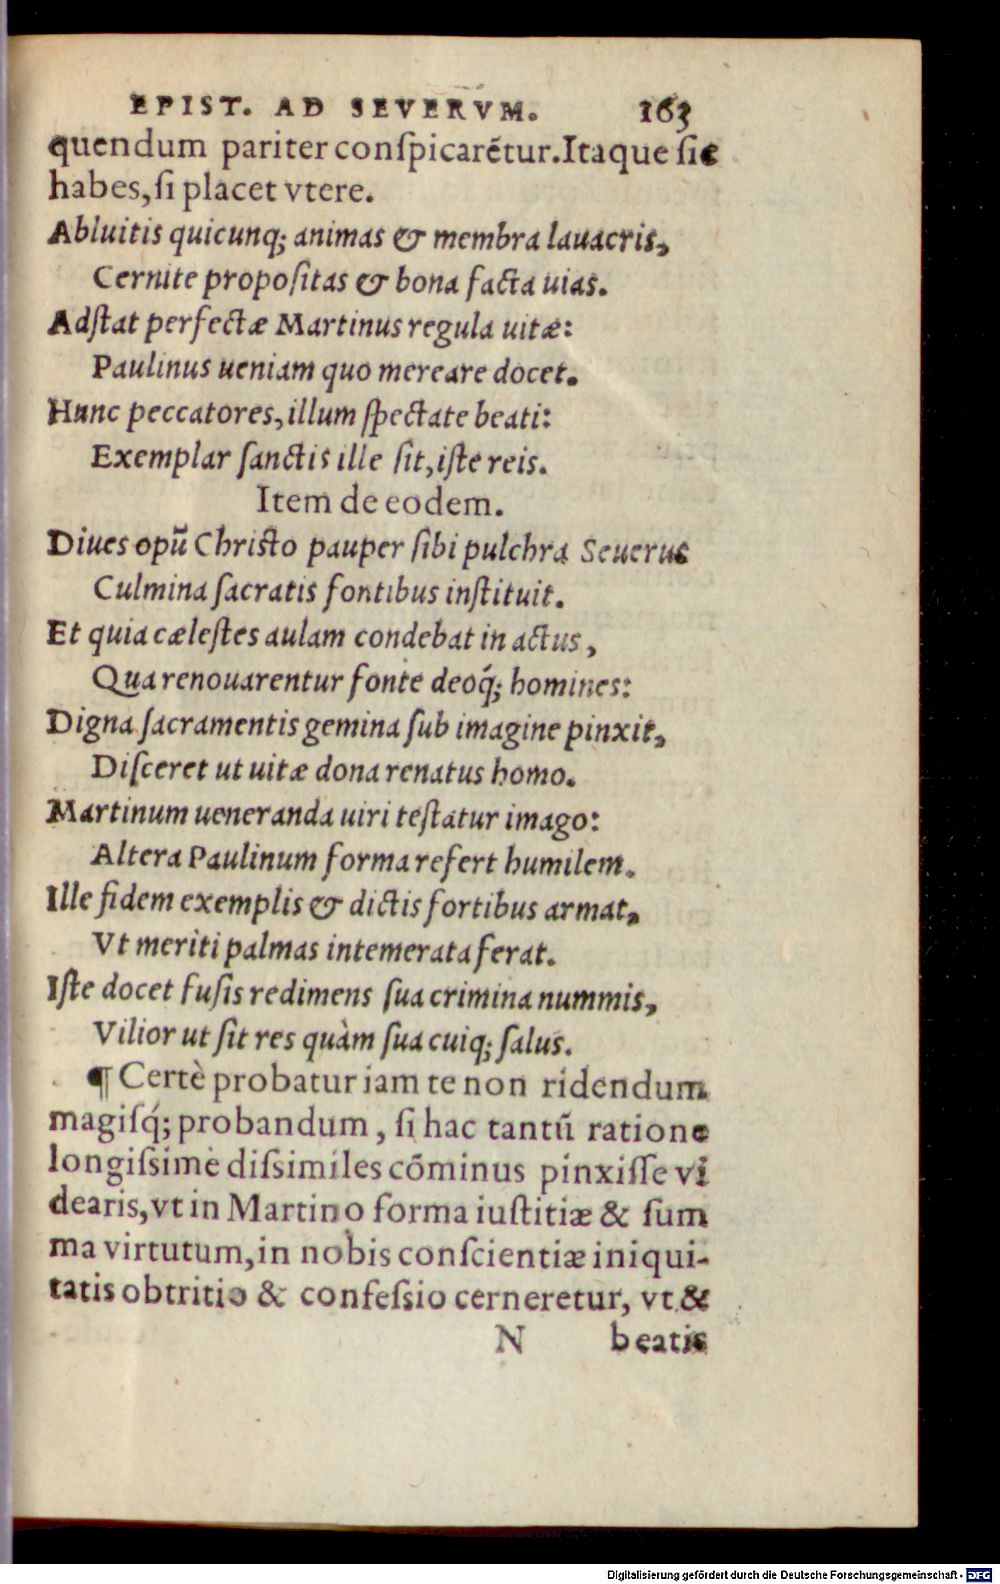 EPIST. AD SEVERVM. 163
quendum pariter conſpicarētur. Itaque ſic
habes, ſi placet vtere.
Abluitis quicunq; animas & membra lauacris,
Cernite propoſitas & bona facta uias.
Adſtat perfectæ Martinus regula uitæ:
Paulinus ueniam quo mereare docet.
Hunc peccatores, illum ſpectate beati:
Exemplar ſanctis ille ſit, iſte reis.
Item de eodem.
Diues opū Chriſto pauper ſibi pulchra Seuerus
Culmina ſacratis fontibus inſtituit.
Et quia cæleſtes aulam condebat in actus,
Qua renouarentur fonte deoq́; homines:
Digna ſacramentis gemina ſub imagine pinxit,
Diſceret ut uitæ dona renatus homo.
Martinum ueneranda uiri teſtatur imago:
Altera Paulinum forma refert humilem.
Ille fidem exemplis & dictis fortibus armat,
Vt meriti palmas intemerata ferat.
Iſte docet fuſis redimens ſua crimina nummis,
Vilior ut ſit res quàm ſua cuiq; ſalus.
¶ Certè probatur iam te non ridendum
magiſq́; probandum, ſi hac tantū ratione
longiſsimè diſsimiles cōminus pinxiſſe vi
dearis, vt in Martino forma iuſtitiæ & ſum
ma virtutum, in nobis conſcientiæ iniqui-
tatis obtritio & confeſsio cerneretur, vt &
N beatis
Digitalisierung gefördert durch die Deutsche Forschungsgemeinschaft - DFG